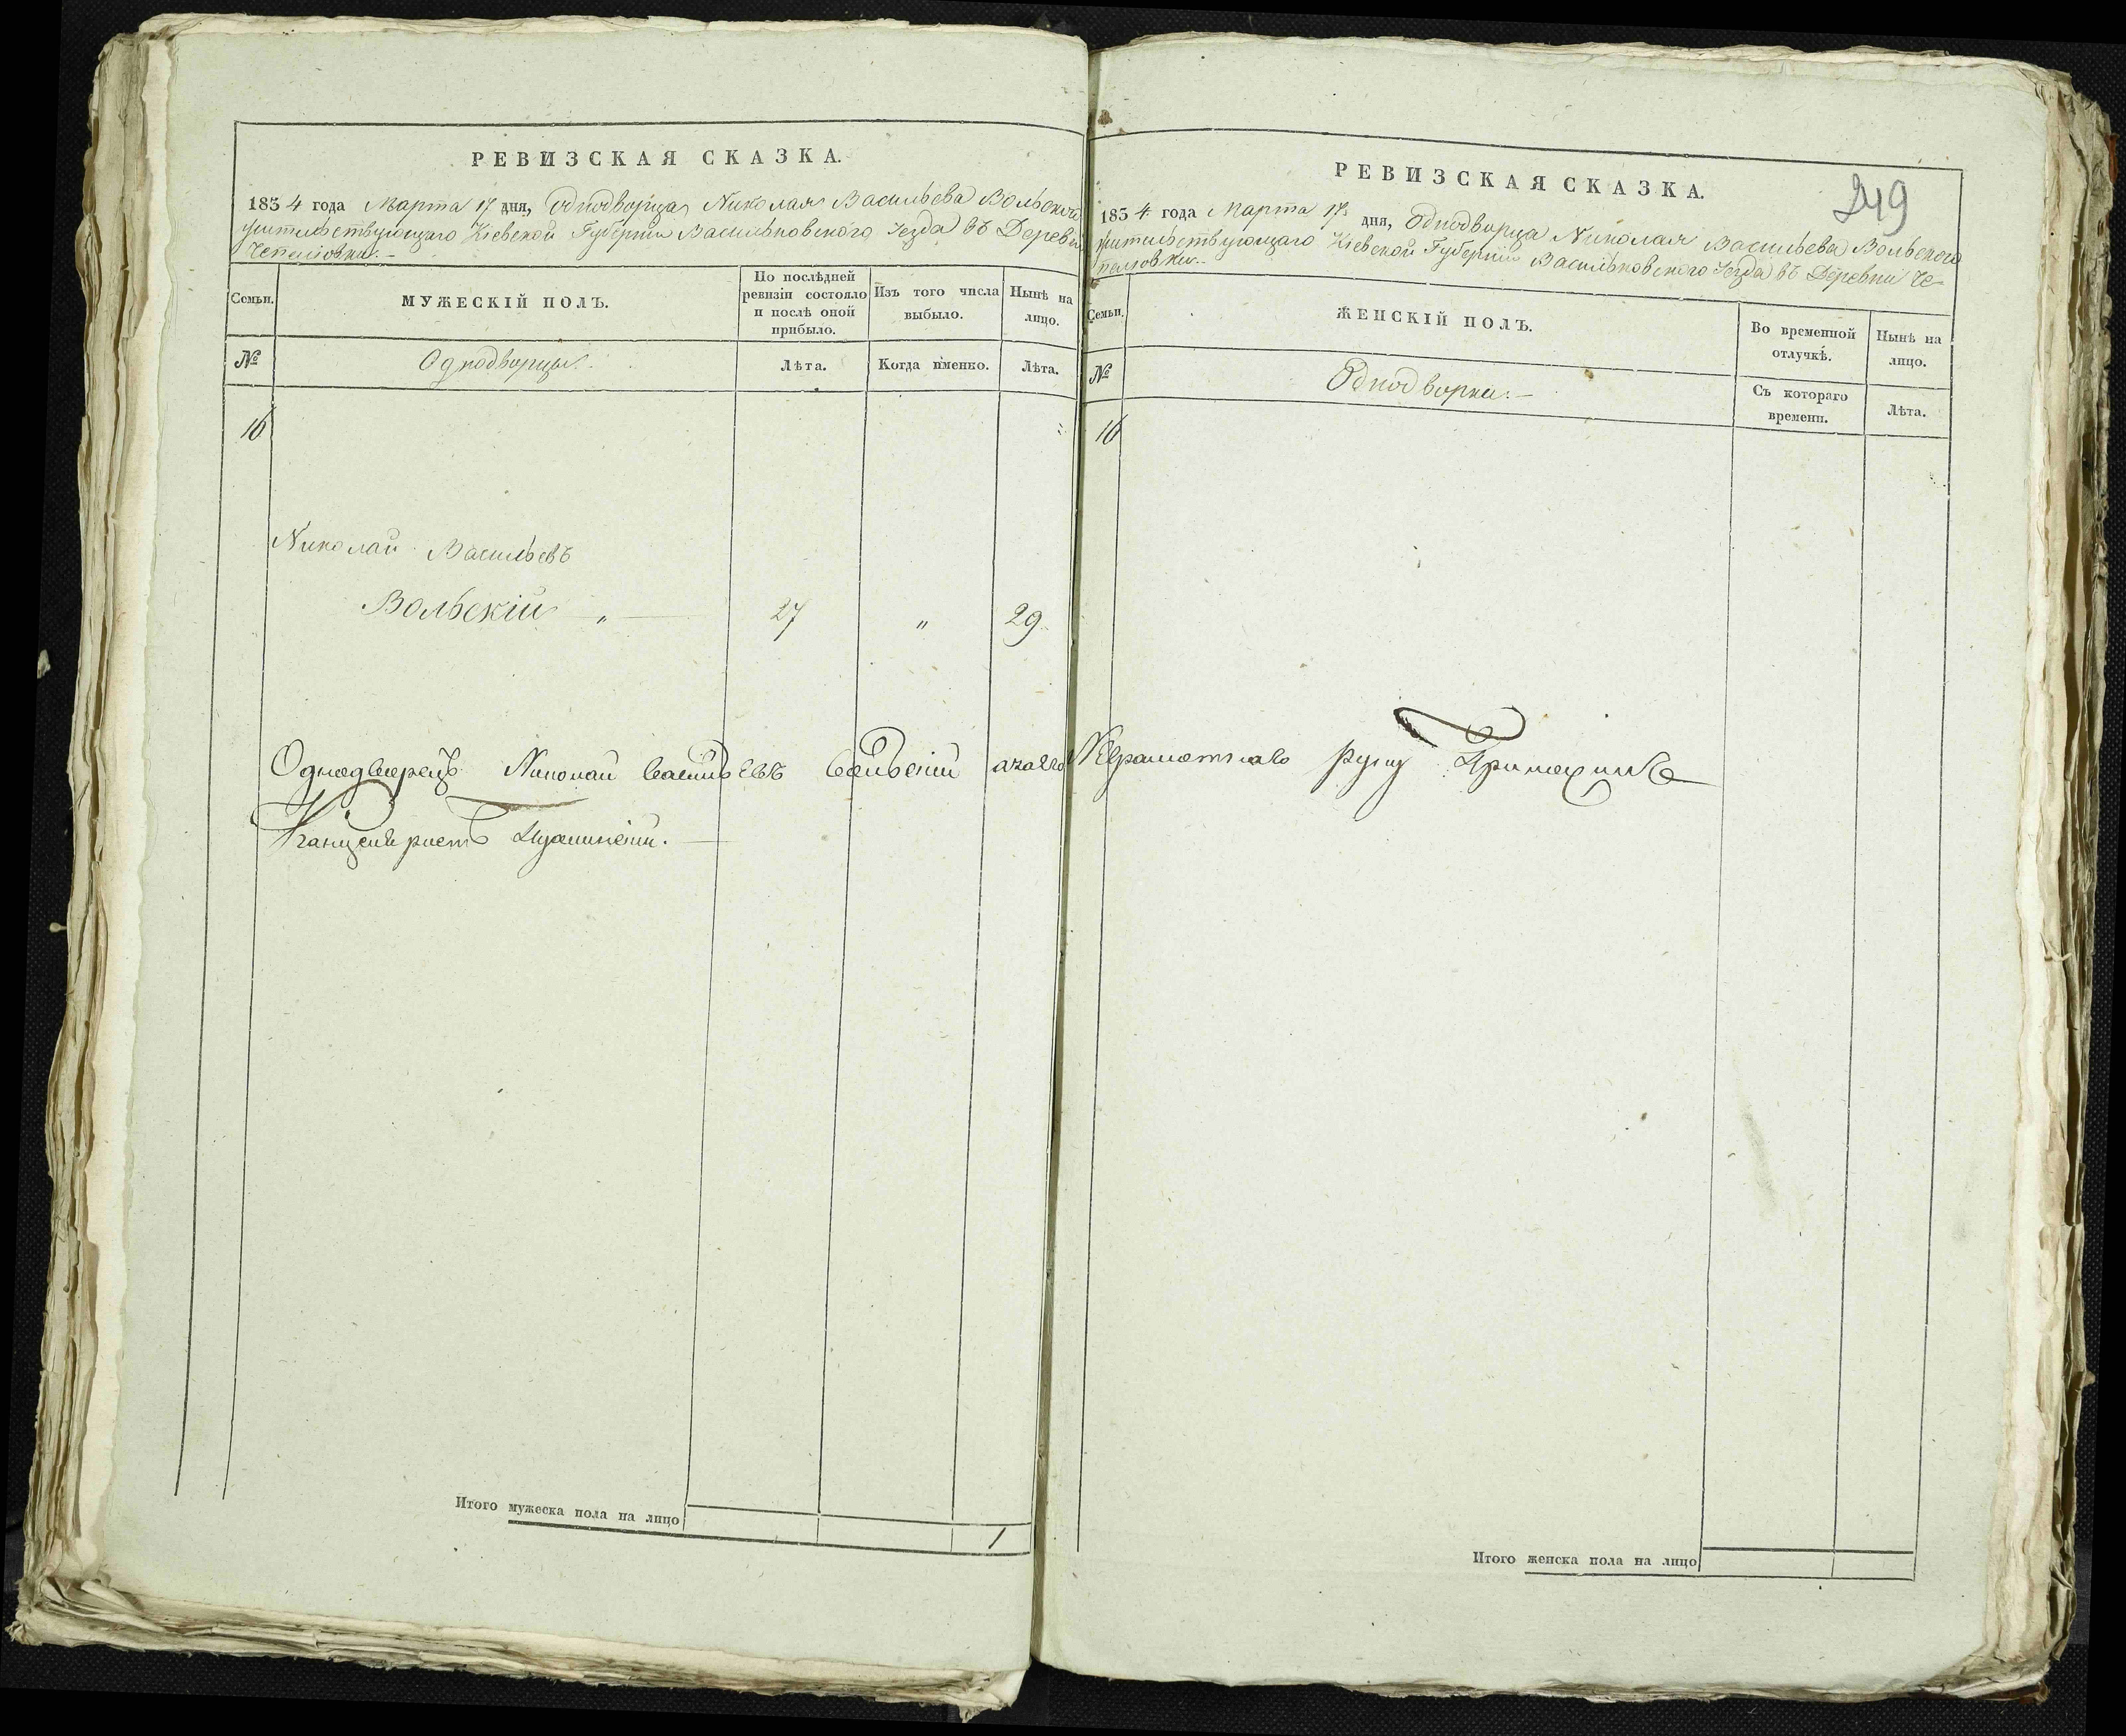 РЕВИЗСКАЯ СКАЗКА.
1854 года Марта 17 дня, Однодворца Николая Васильева Вольской
жительствующаго Кіевской Губерніи Васильковского Уезда въ Деревни
Чепелювки.
Семьи.
МУЖЕСКІЙ ПОЛЪ.
По послѣдней ревизіи состояло и послѣ оной прибыло.
Изъ того числа выбыло.
Нынѣ на лицо.
№
Однодворцы.
Лѣта.
Когда именно.
Лѣта.
16
Николай Васильевъ
Вольскій " 27 " 29
Однодворецъ Николай Васильевъ Вольскій а за его
Канцеляристъ
Итого мужеска пола на лицо 1
249
РЕВИЗСКАЯ СКАЗКА.
1854 года Марта 17 дня, Однодворца Николая Васильева Вольского
жительствующаго Кіевской Губерніи Васильковского Уезда въ Деревни Че-
пелювки.
Семьи.
ЖЕНСКІЙ ПОЛЪ.
Во временной отлучкѣ.
Нынѣ на лицо.
№
Однодворки.
Съ котораго времени.
Лѣта.
16
Неграмотнаго руку приложилъ
Итого женска пола на лицо